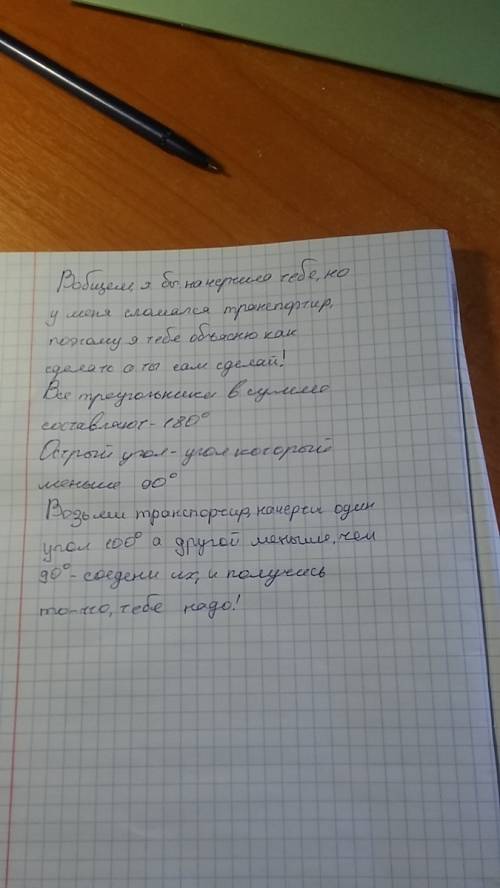 Вобщем я бы начертила тебе, но
у меня сломался транспортир,
поэтому я тебе объясню как
сделать а ты сам сделай!
Все треугольники в сумме
составляют - 180°
Острый угол - угол который
меньше 90°
Возьми транспортир, начерти один
угол 100° а другой меньше, чем
90° - соедени их, и получись
то-что, тебе надо!